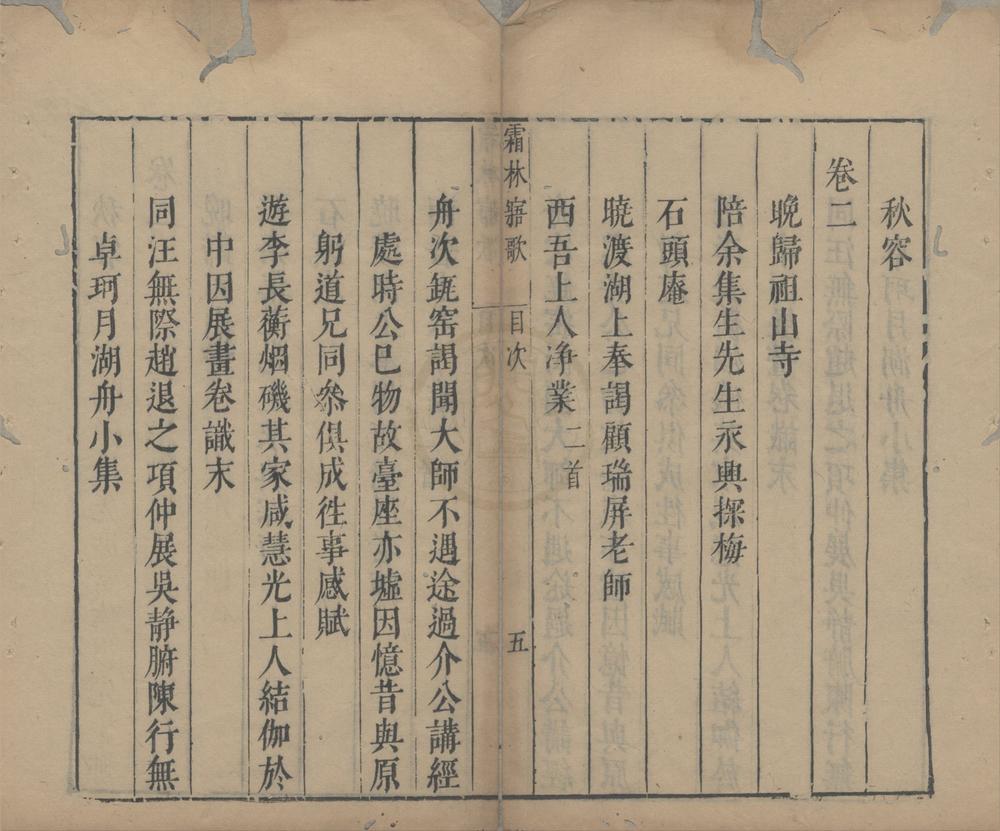 秋容
卷二
晚歸祖山寺
陪余集生先生永興探梅
石頭庵
曉渡湖上奉謁顧瑞屏老師
西吾上人净業二首
霜林寤歌 目次 五
舟次瓶窑謁聞大師不遇途過介公講經
處時公已物故臺座亦墟因憶昔與原
躬道兄同叅俱成徃事感賦
遊李長蘅烟磯其家咸慧光上人結伽於
中因展畫卷識末
同汪無際趙退之項仲展吳静腑陳行無
卓珂月湖舟小集